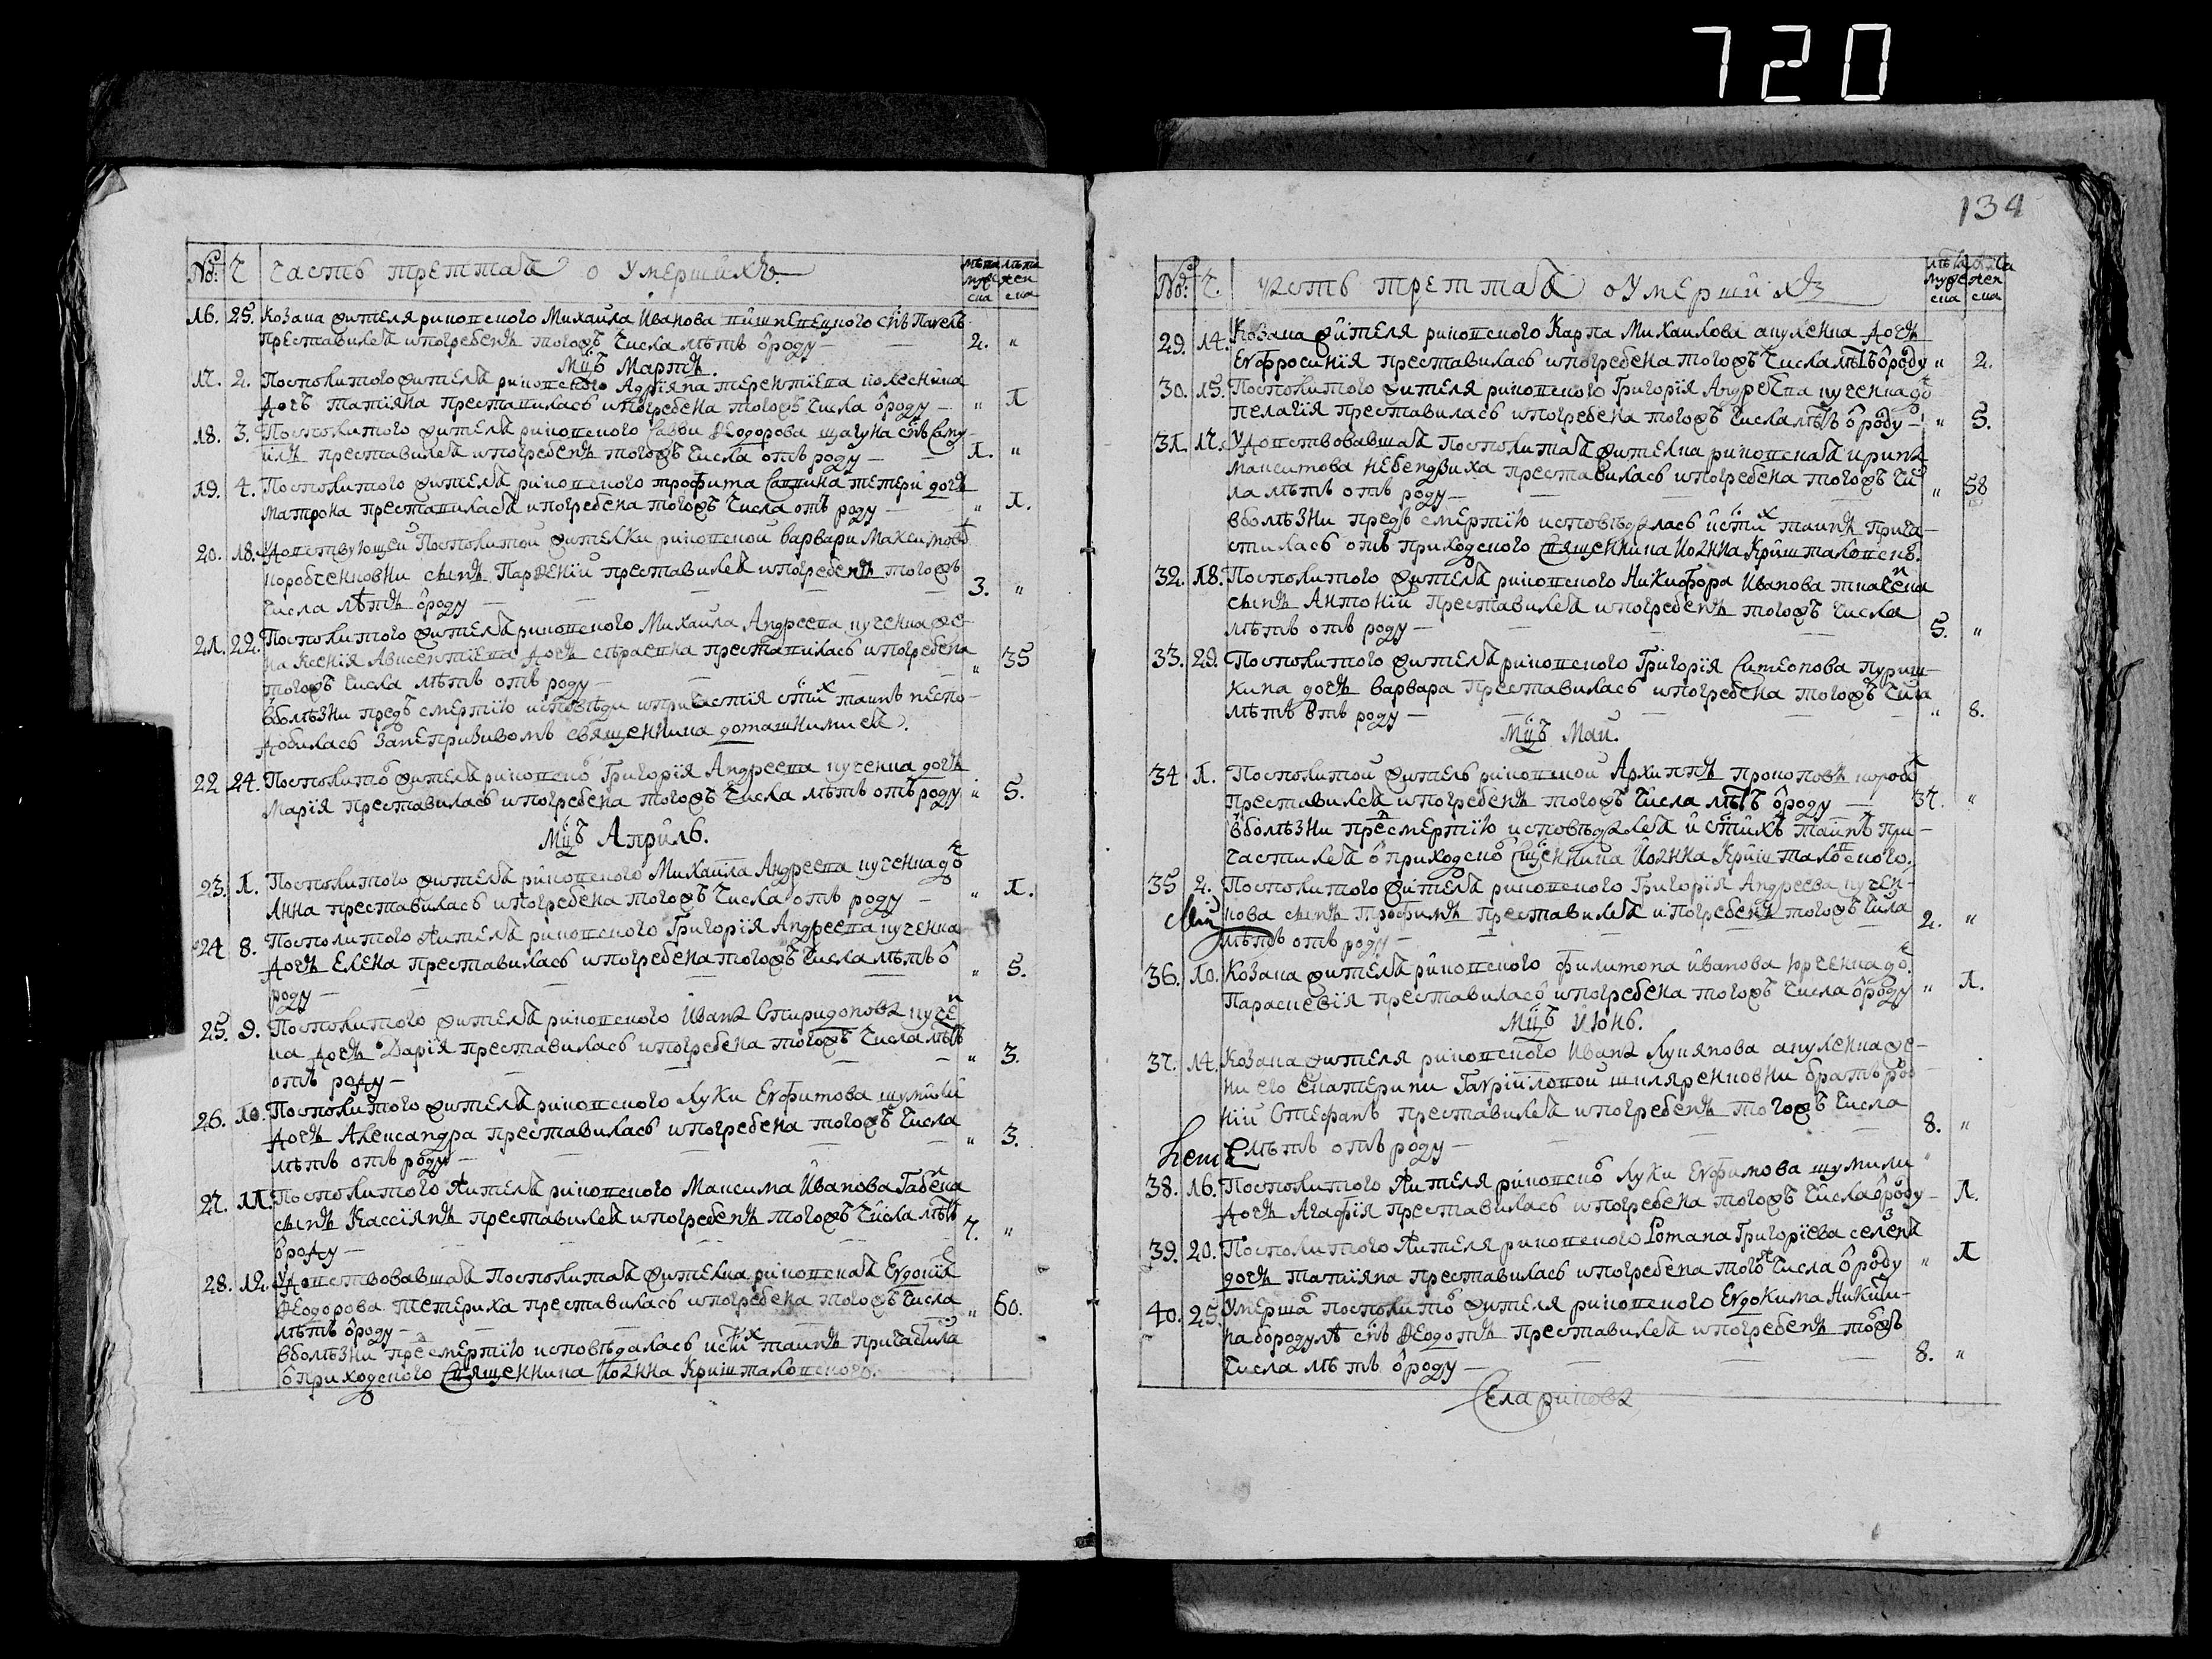 720
No: Ч Часть треттая о умерших
лѣта мужеска лѣта женска
16. 25. Козака жителя риковского Михаила Иванова сн҃ъ Павелъ
преставился и погребенъ того ж числа лѣтъ о роду — 2. „
Мц҃ъ Мартъ.
17. 2. Посполитого жителя риковского Адріяна терентіева колесника
дочь татіяна преставилась и погребена того ж числа о роду — „ 1
18. 3. Посполитого жителя риковского Савви Ѳеодорова щагуна сн҃ъ Саму-
илъ преставился и погребенъ того ж числа отъ роду — 1. „
19. 4. Посполитого жителя риковского трофима Саввина тетери дочь
матрона преставилася и погребена того ж числа отъ роду — „ 1.
20. 18. Вдовствующей Посполитой жителки риковской варвари Максимовой
коробченковни сынъ Парѳеній преставился и погребенъ того ж
числа лѣтъ о роду — 3. „
21. 22. Посполитого жителя риковского Михаила Андреева кученка же-
на Ксенія Авксентіева дочь преставилась и погребена
того ж числа лѣтъ отъ роду — „ 35
в болѣзни предъ смертію исповѣди и причастія ст҃их таинъ неспо-
добилась занепризивомъ священника домашнимися.
22 24. Посполито жителя риковско Григорія Андреева кученка дочь
Марія преставилась и погребена того ж числа лѣтъ отъ роду „ 5.
Мц҃ъ Априль.
23. 1. Посполитого жителя риковского Михаила Андреева кученка доч
Анна преставилась и погребена того ж числа отъ роду — „ 1.
24 8. Посполитого жителя риковского Григорія Андреева кученка
дочь Елена преставилась и погребена того ж числа лѣтъ о
роду — „ 5.
25. 9. Посполитого жителя риковского Ивана Спиридонова кучен
ка дочь Дарія преставилась и погребена того ж числа лѣтъ
отъ роду — „ 3.
26. 10. Посполитого жителя риковского Луки Евфимова шумили
дочь Александра преставилась и погребена того ж числа
лѣтъ отъ роду — „ 3.
27. 11. Посполитого жителя риковского Максима Иванова
сынъ Кассіянъ преставился и погребенъ того ж числа лѣтъ
о роду — 7. „
28. 12. Вдовствовавшая Посполитая жителка риковская Евдокія
Ѳеодорова Тетериха преставилась и погребена того ж числа
лѣтъ о роду — „ 60.
в болѣзни пред смертію исповѣдалась и ст҃их таинъ причастила
о приходского Священника Иоанна Кришталовского.
134
No: Ч. часть треттая о умерших
лѣта мужеска лѣта женска
29. 14. Козака жителя риковского Карпа Михаилова акуленка дочь
Евфросинія преставилась и погребена того ж числа лѣтъ о роду „ 2.
30. 15. Посполитого жителя риковского Григорія Андреева кученка до
пелагія преставилась и погребена того ж числа лѣтъ о роду — „ 5.
31. 17. Удовствовавшая Посполитая жителка риковская ирина
максимова преставилась и погребена того ж чис
ла лѣтъ отъ роду — „ 58
в болѣзни предъ смертію исповѣдалась и ст҃их таинъ прича-
стилась отъ приходского Священника Иоанна Кришталовско.
32. 18. Посполитого жителя риковского Никифора Иванова ткаченка
сынъ Антоній преставился и погребенъ того ж числа
лѣтъ отъ роду — 5. „
33. 29. Посполитого жителя риковского Григорія Симеонова пуриш-
кина дочь варвара преставилась и погребена того ж числа
лѣтъ отъ роду — „ 8.
Мц҃ъ Маи.
34 1. Посполитой житель риковской Архиппъ прокоповъ
преставился и погребенъ того ж числа лѣтъ о роду — 37. „
в болѣзни пред смертію исповѣдался и ст҃ихъ таинъ при-
частился о приходско Сщ҃енника Иоанна Кришталовского.
35 2. Посполитого жителя риковского Григорія Андреева кучен-
кова сынъ трофимъ преставился и погребенъ того ж числа
лѣтъ отъ роду — 2. „
36. 10. Козака жителя риковского филимона иванова юрченка до.
Параскевія преставилась и погребена того ж числа о роду „ 1.
Мц҃ъ Июнь.
37. 14. Козака жителя риковского Ивана Лукянова акуленка же-
ни его Екатерини Гавріиловой шкляренковни братъ род
ній Стефанъ преставился и погребенъ того ж числа
лѣтъ отъ роду — 8. „
38. 16. Посполитого жителя риковско Луки Евфимова шумили
дочь Агафія преставилась и погребена того ж числа о роду — „ 1.
39. 20. Посполитого жителя риковского Романа Григоріева
дочь татіяна преставилась и погребена того ж числа о роду „ 1
40. 25. Умерша посполито жителя риковского Евдокима Никити-
на бородулѣ сн҃ъ Ѳеодотъ преставился и погребенъ того ж
числа лѣтъ о роду — 8. „
Села рикова